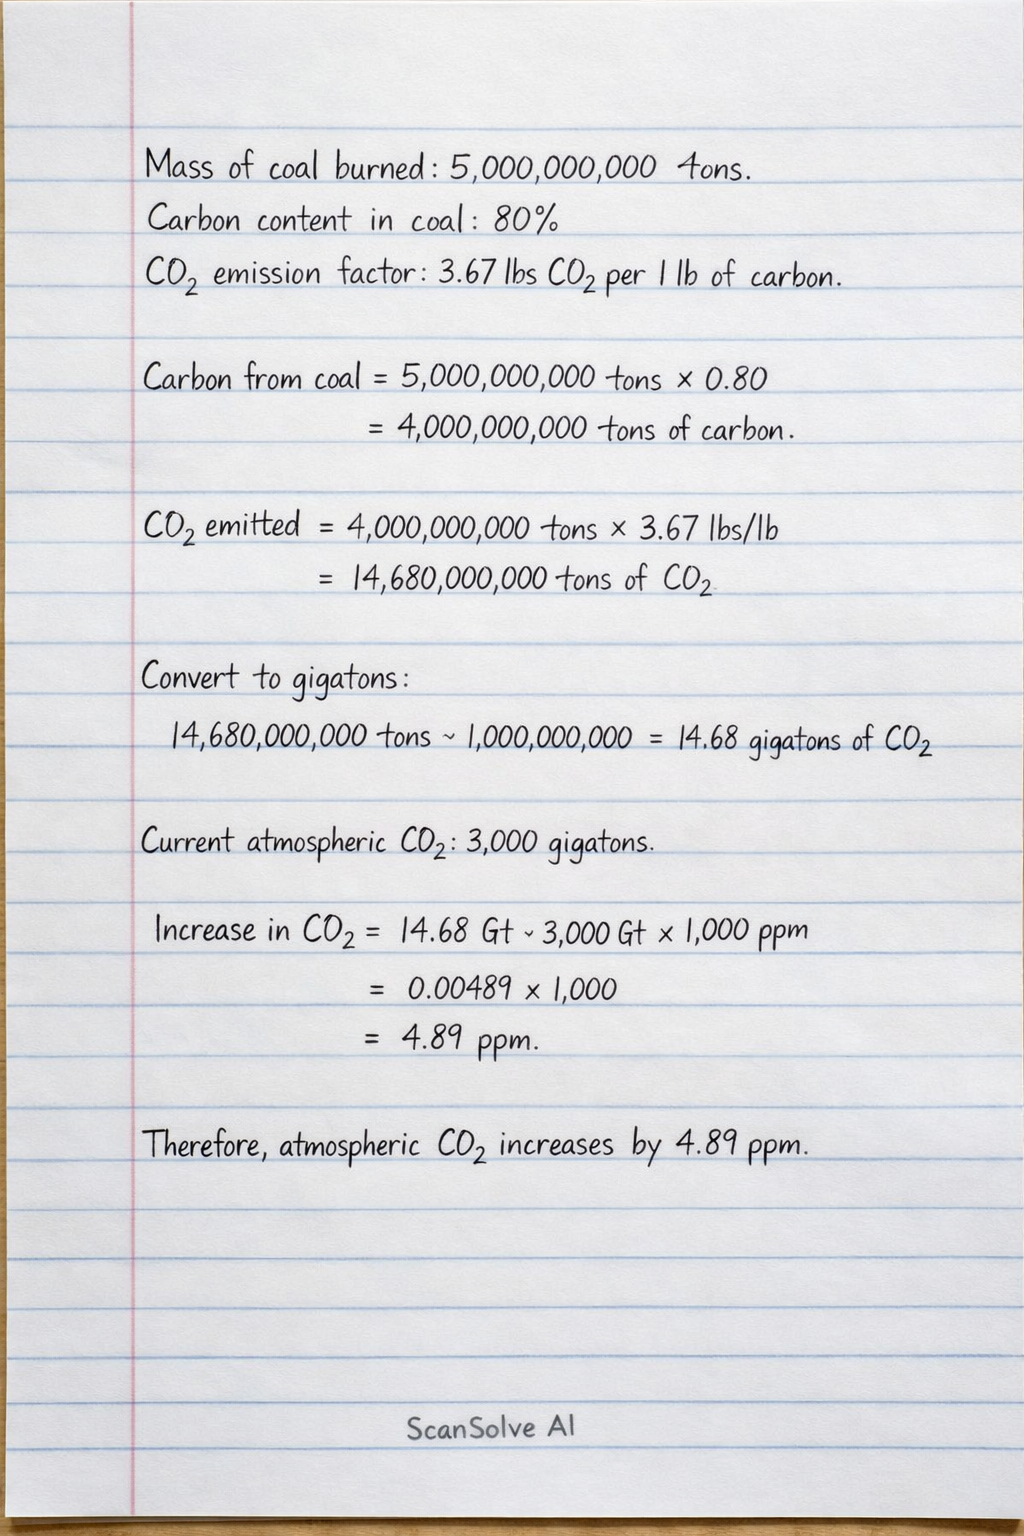 Mass of coal burned: 5,000,000,000 tons.
Carbon content in coal: 80%
CO₂ emission factor: 3.67 lbs CO₂ per 1 lb of carbon.
Carbon from coal = 5,000,000,000 tons × 0.80
= 4,000,000,000 tons of carbon.
CO₂ emitted = 4,000,000,000 tons × 3.67 lbs/lb
= 14,680,000,000 tons of CO₂
Convert to gigatons:
14,680,000,000 tons ~ 1,000,000,000 = 14.68 gigatons of CO₂
Current atmospheric CO₂: 3,000 gigatons.
Increase in CO₂ = 14.68 Gt ~ 3,000 Gt × 1,000 ppm
= 0.00489 × 1,000
= 4.89 ppm.
Therefore, atmospheric CO₂ increases by 4.89 ppm.
ScanSolve AI